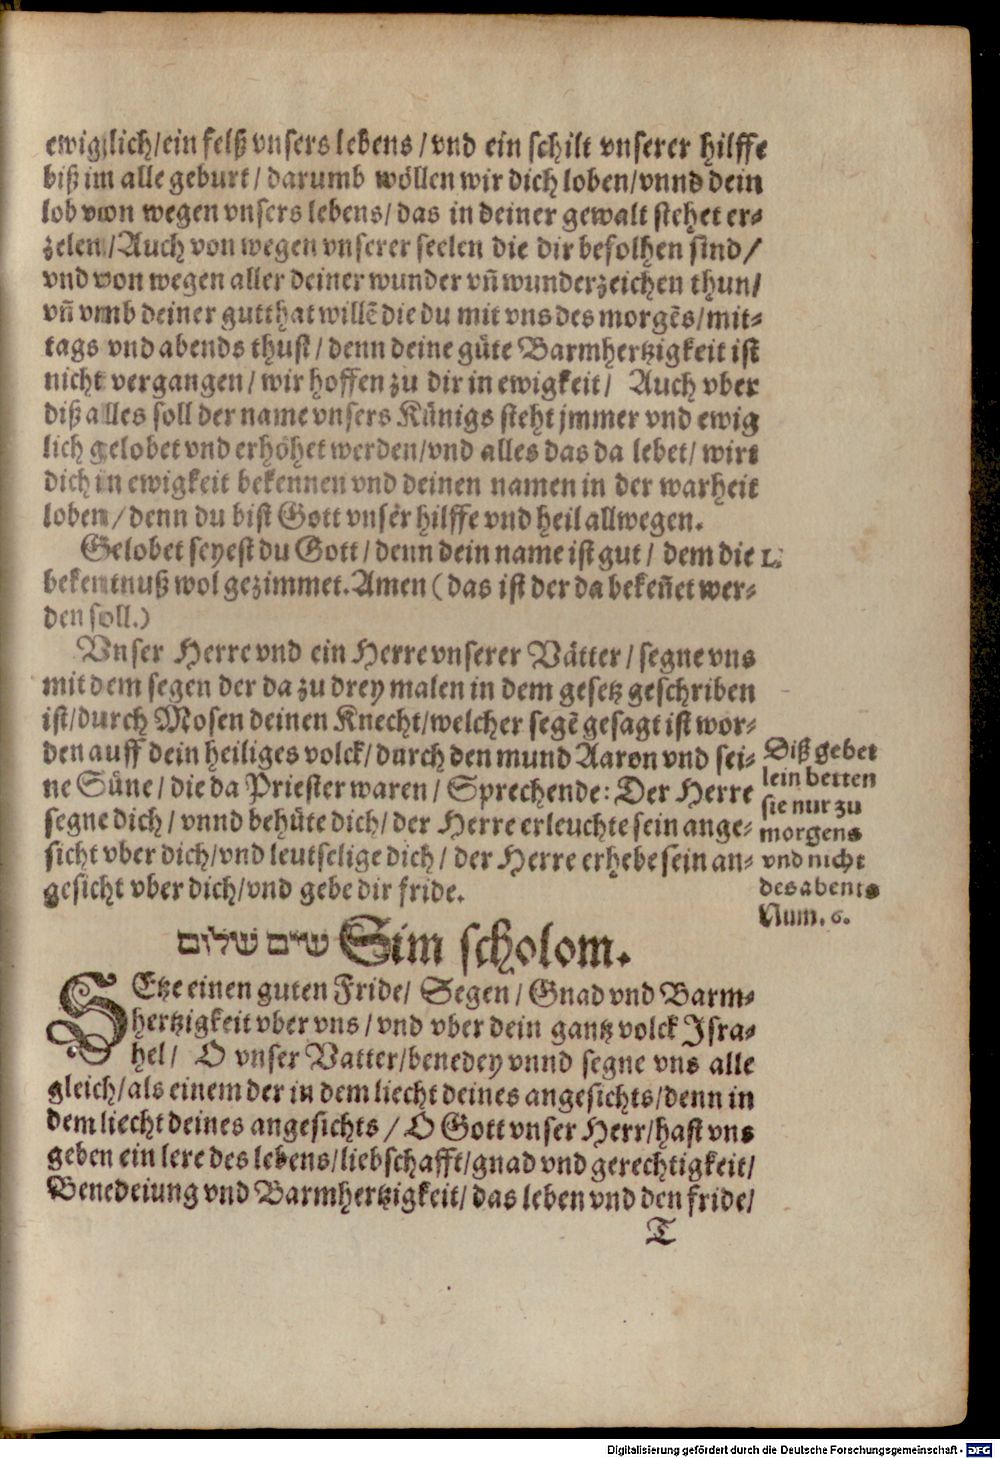 ewiglich/ein felß vnsers lebens/vnd ein schilt vnserer hilffe
biß im alle geburt/ darumb wöllen wir dich loben/vnnd dein
lob von wegen vnsers lebens/ das in deiner gewalt stehet er-
zelen/Auch von wegen vnserer seelen die dir befolhen sind/
vnd von wegen aller deiner wunder vñ wunderzeichen thun/
vñ vmb deiner gutthat willẽ die du mit vns des morgẽs/mit-
tags vnd abends thust/ denn deine güte Barmhertzigkeit ist
nicht vergangen/ wir hoffen zu dir in ewigkeit/ Auch vber
diß alles soll der name vnsers Künigs steht jmmer vnd ewig
lich gelobet vnd erhöhet werden/vnd alles das da lebet/ wirt
dich in ewigkeit bekennen vnd deinen namen in der warheit
loben/ denn du bist Gott vnser hilffe vnd heil allwegen.
Gelobet seyest du Gott/ denn dein name ist gut/ dem die L.
bekentnuß wol gezimmet. Amen (das ist der da bekeñet wer-
den soll.)
Vnser Herre vnd ein Herre vnserer Vätter/ segne vns
mit dem segen der da zu drey malen in dem gesetz geschriben
ist/durch Mosen deinen Knecht/welcher segẽ gesagt ist wor-
den auff dein heiliges volck/ durch den mund Aaron vnd sei-
ne Süne/ die da Priester waren/ Sprechende: Der Herre
segne dich/ vnnd behüte dich/ der Herre erleuchte sein ange-
sicht vber dich/vnd leutselige dich/ der Herre erhebe sein an-
gesicht vber dich/vnd gebe dir fride.
Diß gebet
lein betten
sie nur zu
morgens
vnd nicht
des abents
Num. 6.
שים שלום Sim scholom.
SEtze einen guten Fride/ Segen/ Gnad vnd Barm-
hertzigkeit vber vns/ vnd vber dein gantz volck Isra-
hel/ O vnser Vatter/benedey vnnd segne vns alle
gleich/als einem der in dem liecht deines angesichts/denn in
dem liecht deines angesichts/ O Gott vnser Herr/hast vns
geben ein lere des lebens/liebschafft/gnad vnd gerechtigkeit/
Benedeiung vnd Barmhertzigkeit/ das leben vnd den fride/
T
Digitalisierung gefördert durch die Deutsche Forschungsgemeinschaft - DFG